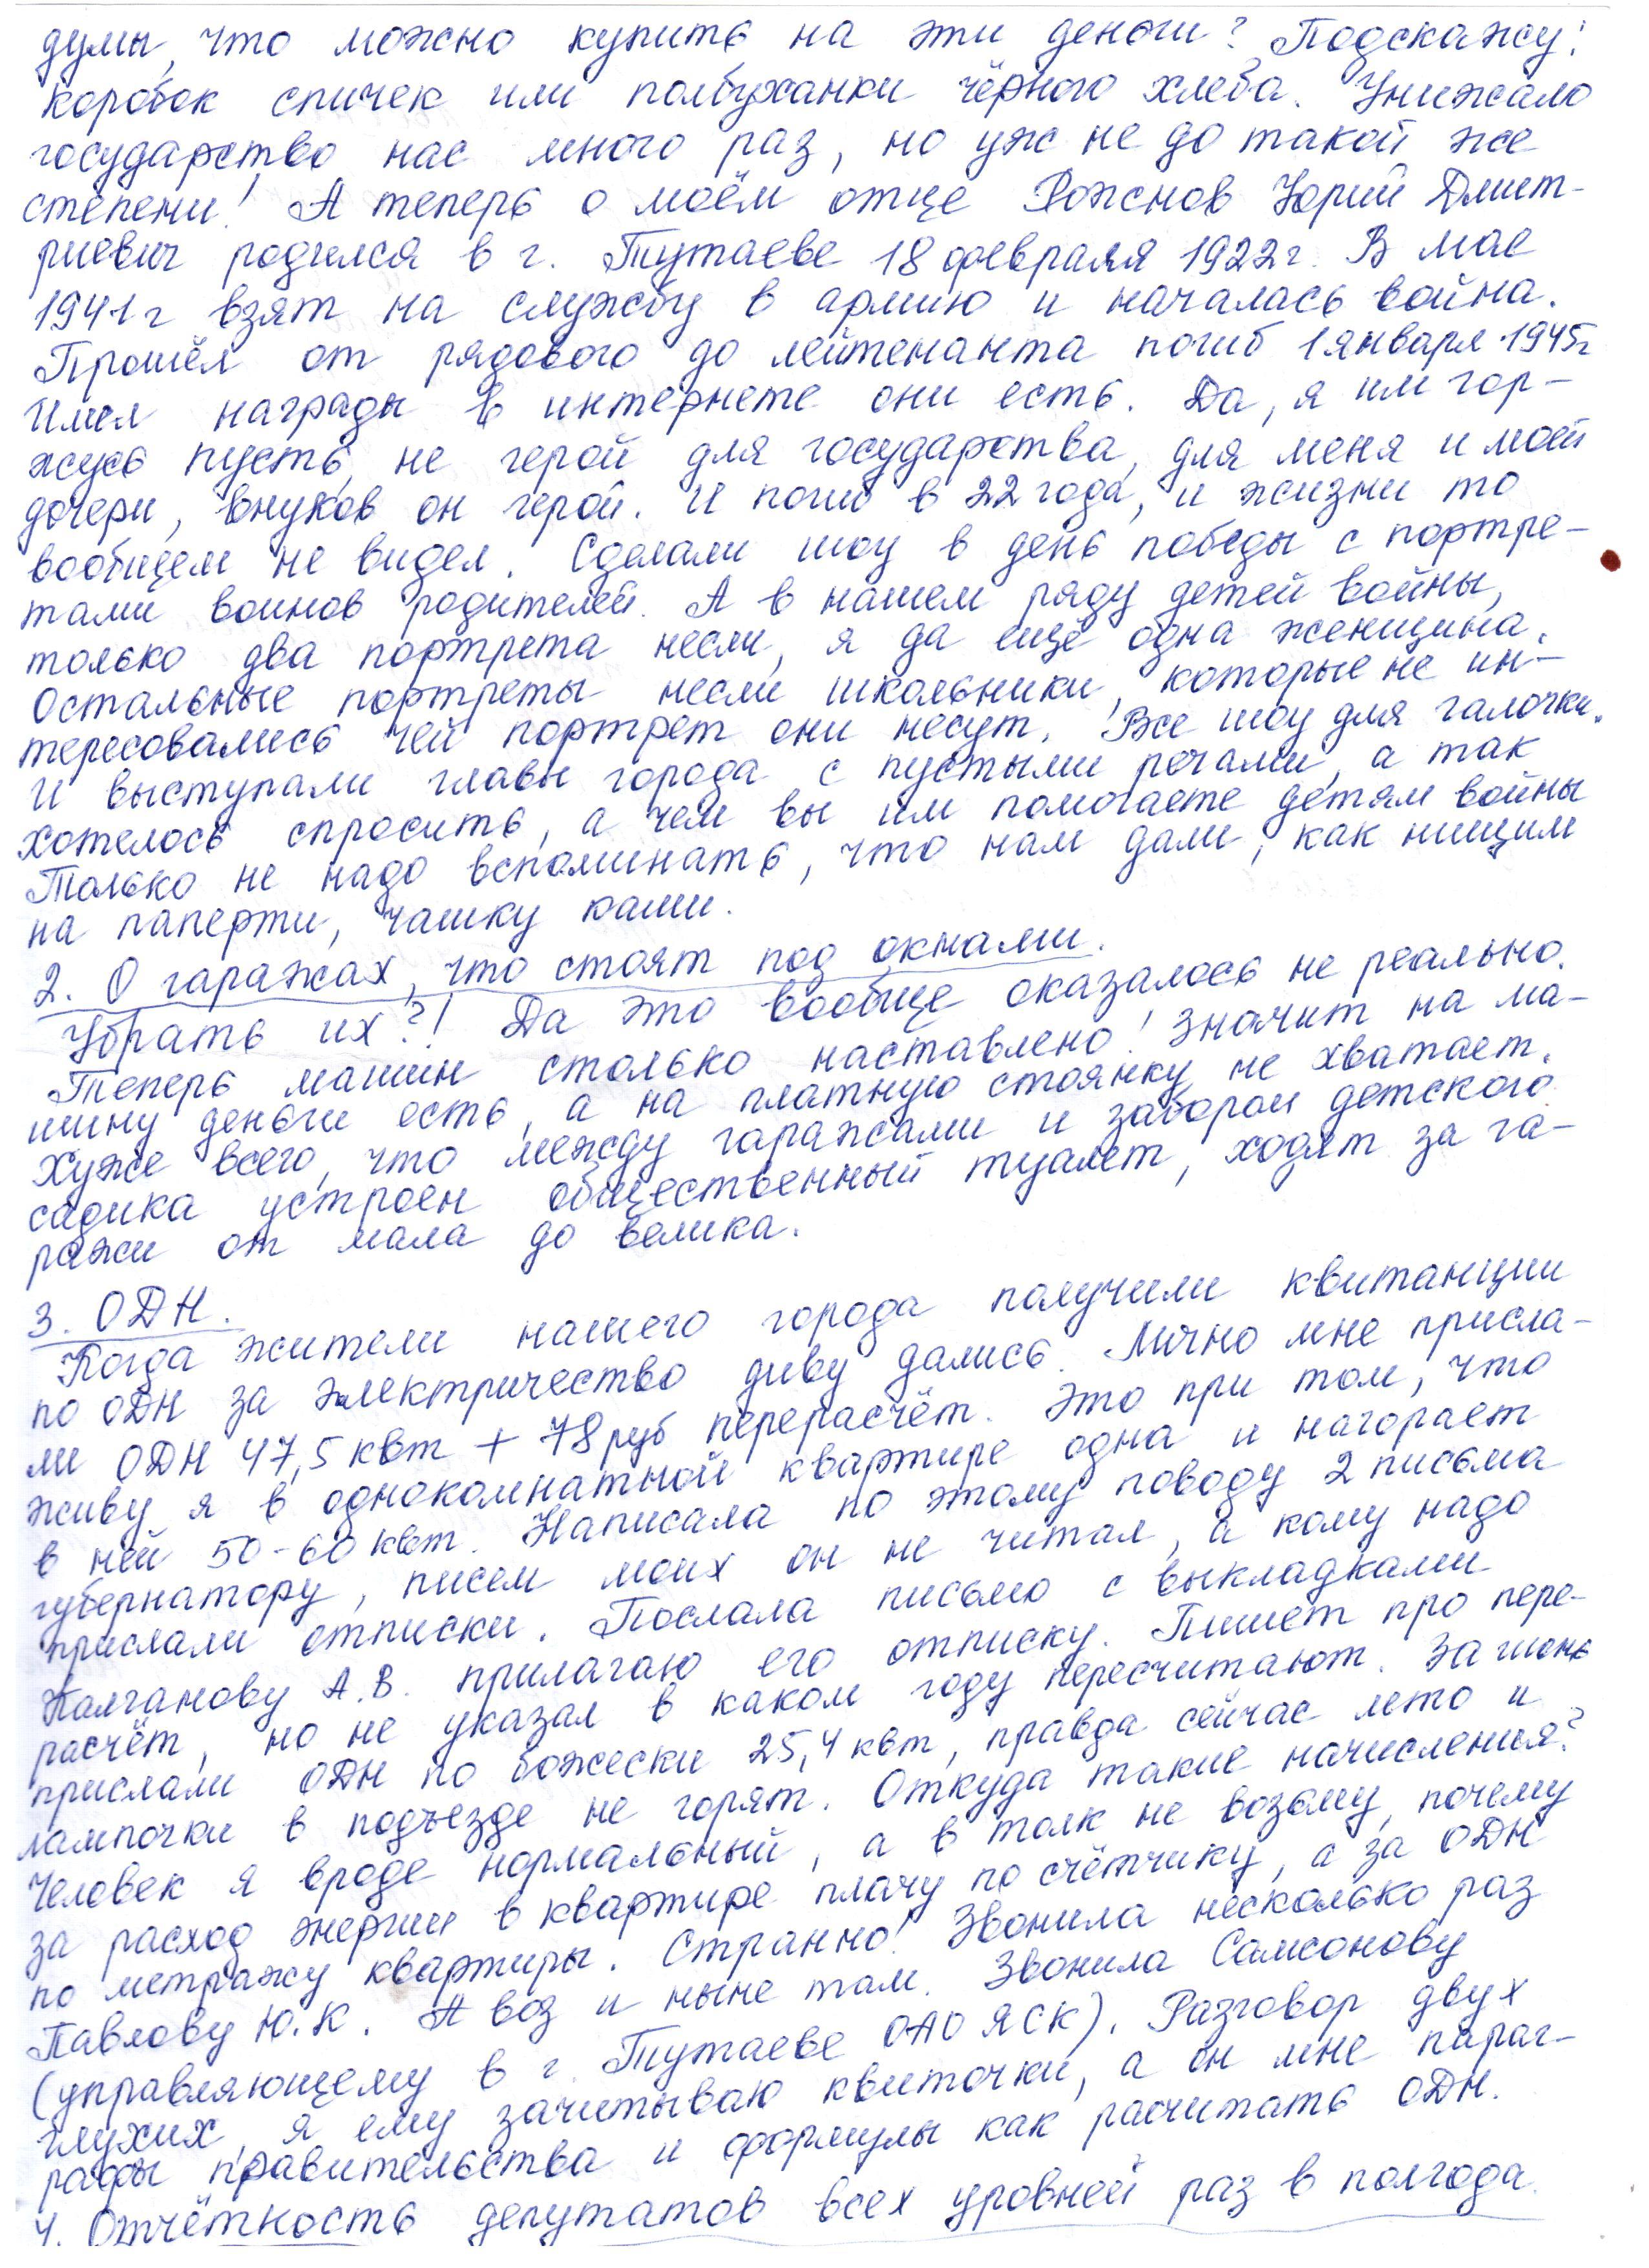 думы, что можно купить на эти деньги? Подскажу:
коробок спичек или полбуханки чёрного хлеба. Унижало
государство нас много раз, но уж не до такой же
степени! А теперь о моём отце Рожнов Юрий Дмит-
риевич родился в г. Тутаеве 18 февраля 1922г. В мае
1941г взят на службу в армию и началась война.
Прошёл от рядового до лейтенанта погиб 1 января 1945г
Имел награды в интернете они есть. Да, я им гор-
жусь пусть не герой для государства, для меня и моей
дочери, внуков он герой. И погиб в 22 года, и жизни то
вообщем не видел. Сделали шоу в день победы с портре-
тами воинов родителей. А в нашем ряду детей войны,
только два портрета несли, я да ещё одна женщина.
Остальные портреты несли школьники, которые не ин-
тересовались чей портрет они несут. Все шоу для галочки.
И выступали главы города с пустыми речами, а так
хотелось спросить, а чем вы им помогаете детям войны
Только не надо вспоминать, что нам дали, как нищим
на паперти, чашку каши.
2. О гаражах, что стоят под окнами.
Убрать их?! Да это вообще оказалось не реально.
Теперь машин столько наставлено! Значит на ма-
шину деньги есть, а на платную стоянку не хватает.
Хуже всего, что между гаражами и забором детского
садика устроен общественный туалет, ходят за га-
ражи от мала до велика.
3. ОДН.
Когда жители нашего города получили квитанции
по ОДН за электричество диву дались. Лично мне присла-
ли ОДН 47,5 квт + 78 руб перерасчёт. Это при том, что
живу я в однокомнатной квартире одна и нагорает
в ней 50-60 квт. Написала по этому поводу 2 письма
губернатору, писем моих он не читал, а кому надо
прислали отписки. Послала письмо с выкладками
Палганову А.В. прилагаю его отписку. Пишет про пере-
расчёт, но не указал в каком году пересчитают. За июнь
прислали ОДН по божески 25,4 квт, правда сейчас лето и
лампочки в подъезде не горят. Откуда такие начисления?
Человек я вроде нормальный, а в толк не возьму, почему
за расход энергии в квартире плачу по счётчику, а за ОДН
по метражу квартиры. Странно! Звонила несколько раз
Павлову Ю.К. А воз и ныне там. Звонила Самсонову
(управляющему в г. Тутаеве ОАО ЯСК). Разговор двух
глухих, я ему зачитываю квиточки, а он мне параг-
рафы правительства и формулы как расчитать ОДН.
4. Отчётность депутатов всех уровней раз в полгода.